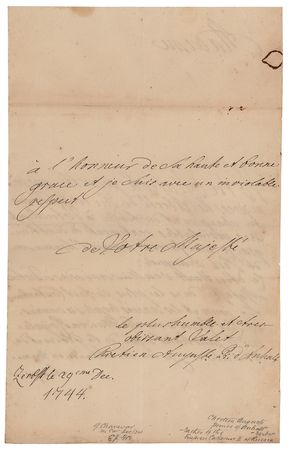 à l'honneur de sa haute et bonne
grace et je suis avec un inviolable
respect
de Votre Majesté
le plus humble et tres
obeissant Valet
Chretien Auguste P. d'Anhalt
Zerbst le 29me Dec.
1744.
Christian August
Prince of Anhalt
father to the